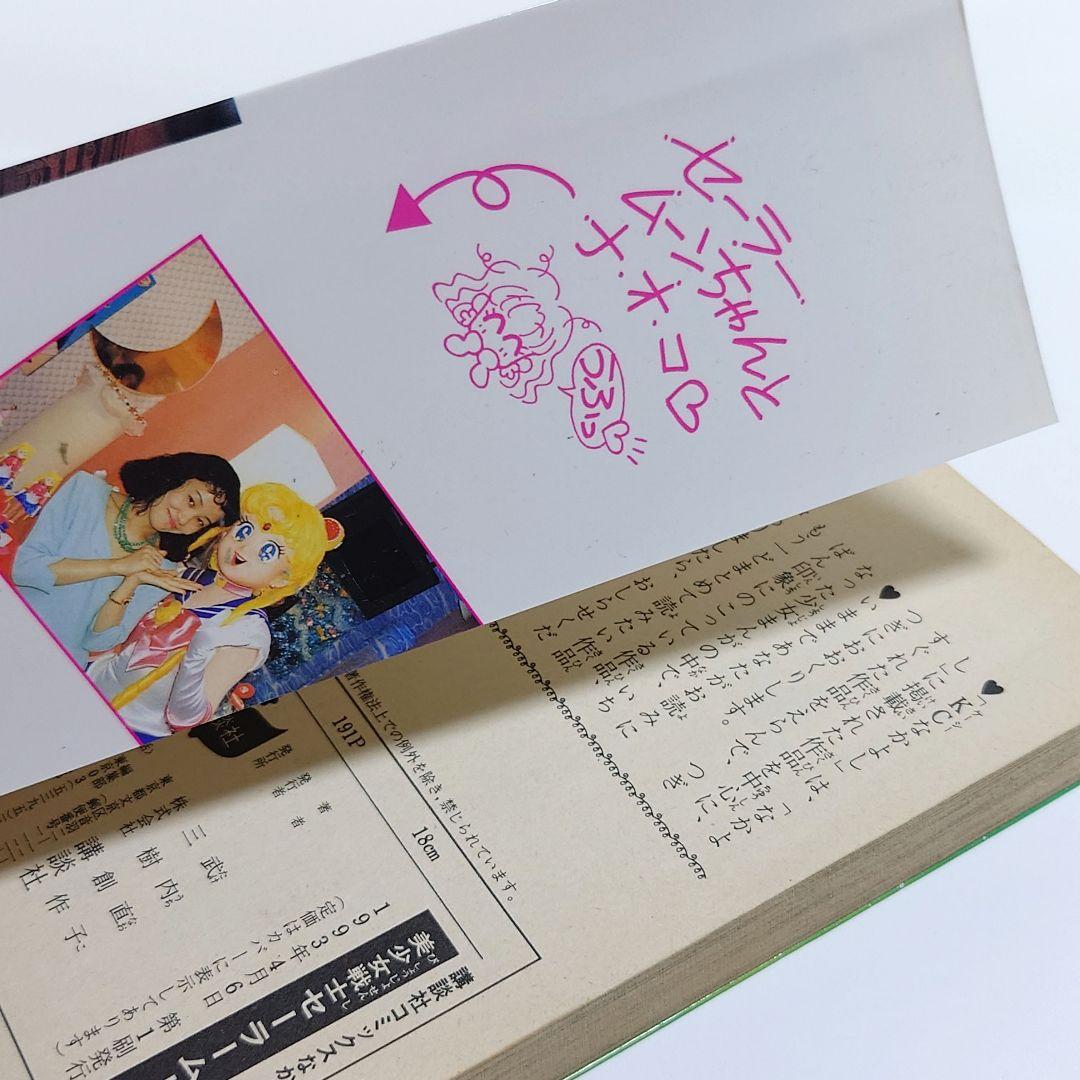 セーラー
ムーンちゃんと
ナ・オ・コ♡
うふっ
♥「KCなかよし」は、「なかよ
し」に掲載された作品を中心に、
すぐれた作品をえらんで、つぎ
つぎにおおくりします。
♥いままであなたがお読みに
なった少女まんがの中で、いち
ばん印象にのこっている作品、
もう一どまとめて読みたい作品
ましたら、おしらせくだ
著作権法上での例外を除き,禁じられています。
191P
18cm
講談社コミックスなか
美少女戦士セーラーム
1993年4月6日 第1刷発行
(定価はカバーに表示してあります)
著者 武内直子
発行者 三樹創作
発行所 株式会社 講談社
東京都文京区音羽二-一二-